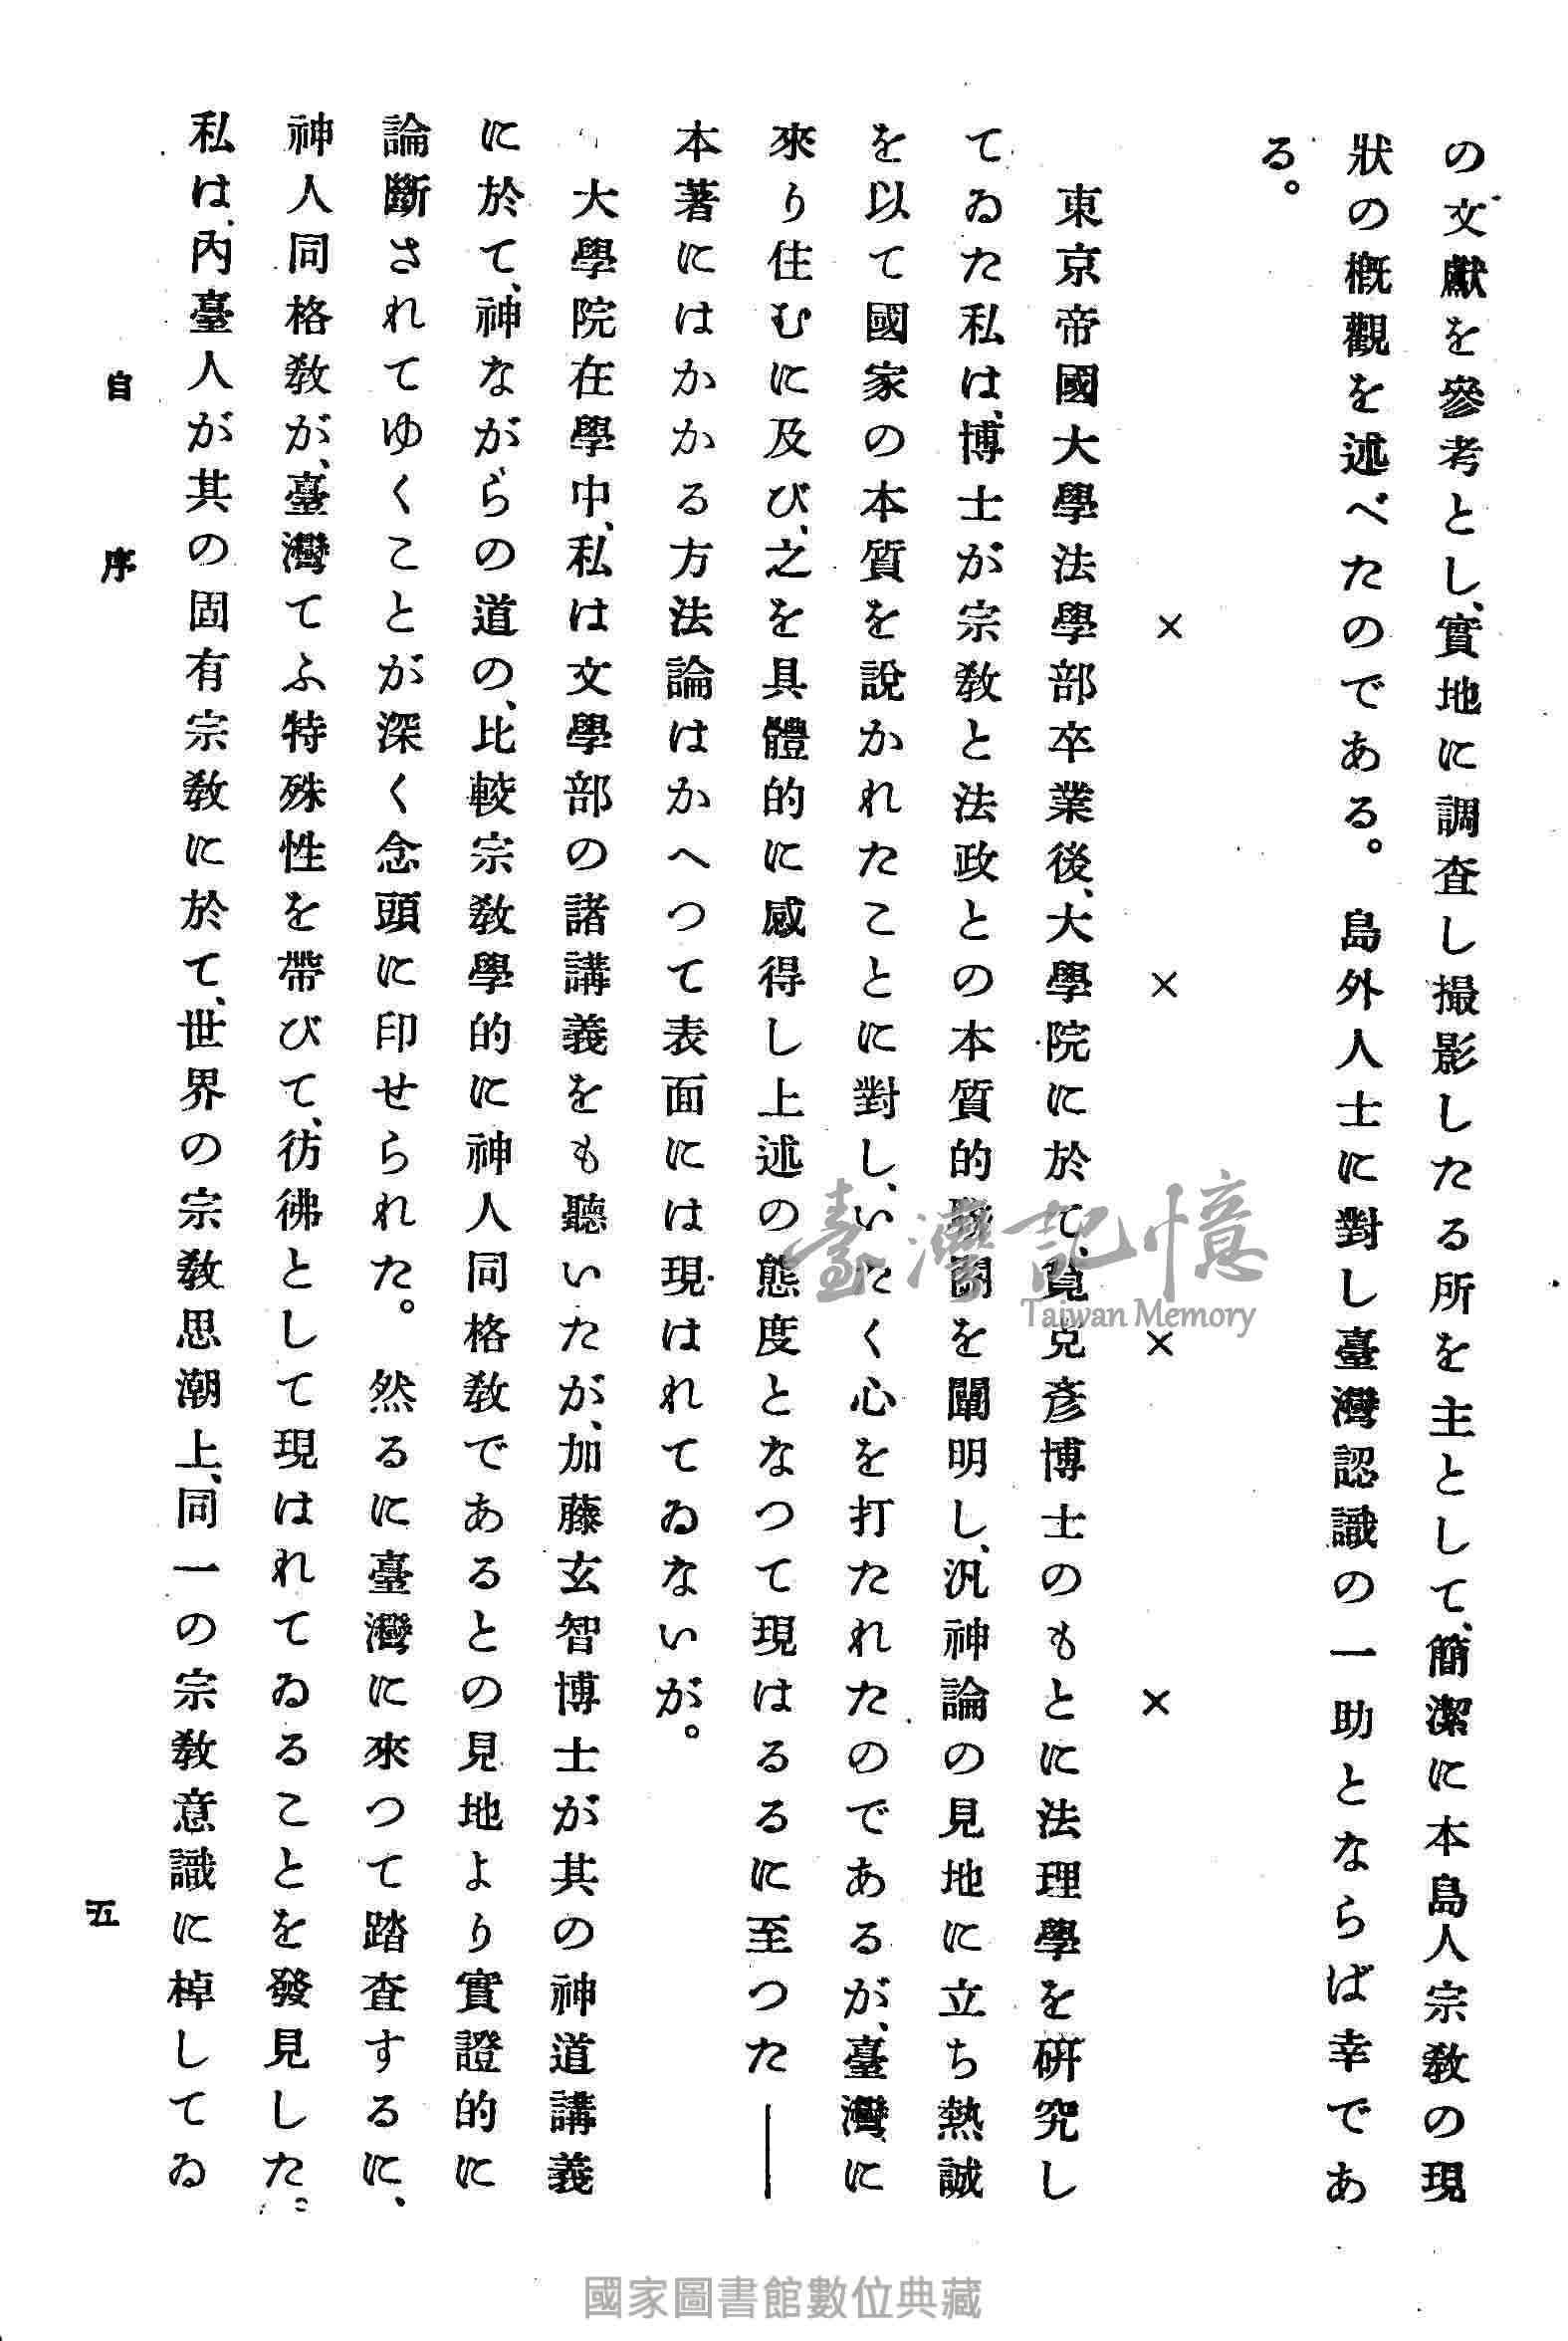 の文獻を參考とし、實地に調査し撮影したる所を主として、簡潔に本島人宗敎の現
狀の槪觀を述べたのである。島外人士に對し臺灣認識の一助とならば幸であ
る。
× × × ×
東京帝國大學法學部卒業後、大學院に於て、筧克彥博士のもとに法理學を硏究し
てゐた私は、博士が宗敎と法政との本質的聯關を闡明し、汎神論の見地に立ち熱誠
を以て國家の本質を說かれたことに對し、いたく心を打たれたのであるが、臺灣に
來り住むに及び、之を具體的に感得し上述の態度となつて現はるるに至つた――
本著にはかかる方法論はかへつて表面には現はれてゐないが。
大學院在學中、私は文學部の諸講義をも聽いたが、加藤玄智博士が其の神道講義
に於て、神ながらの道の、比較宗敎學的に神人同格敎であるとの見地より實證的に
論斷されてゆくことが深く念頭に印せられた。然るに臺灣に來つて踏査するに、
神人同格敎が、臺灣てふ特殊性を帶びて、彷彿として現はれてゐることを發見した。
私は、內臺人が其の固有宗敎に於て、世界の宗敎思潮上、同一の宗敎意識に棹してゐ
自序
五
臺灣記憶
Taiwan Memory
國家圖書館數位典藏